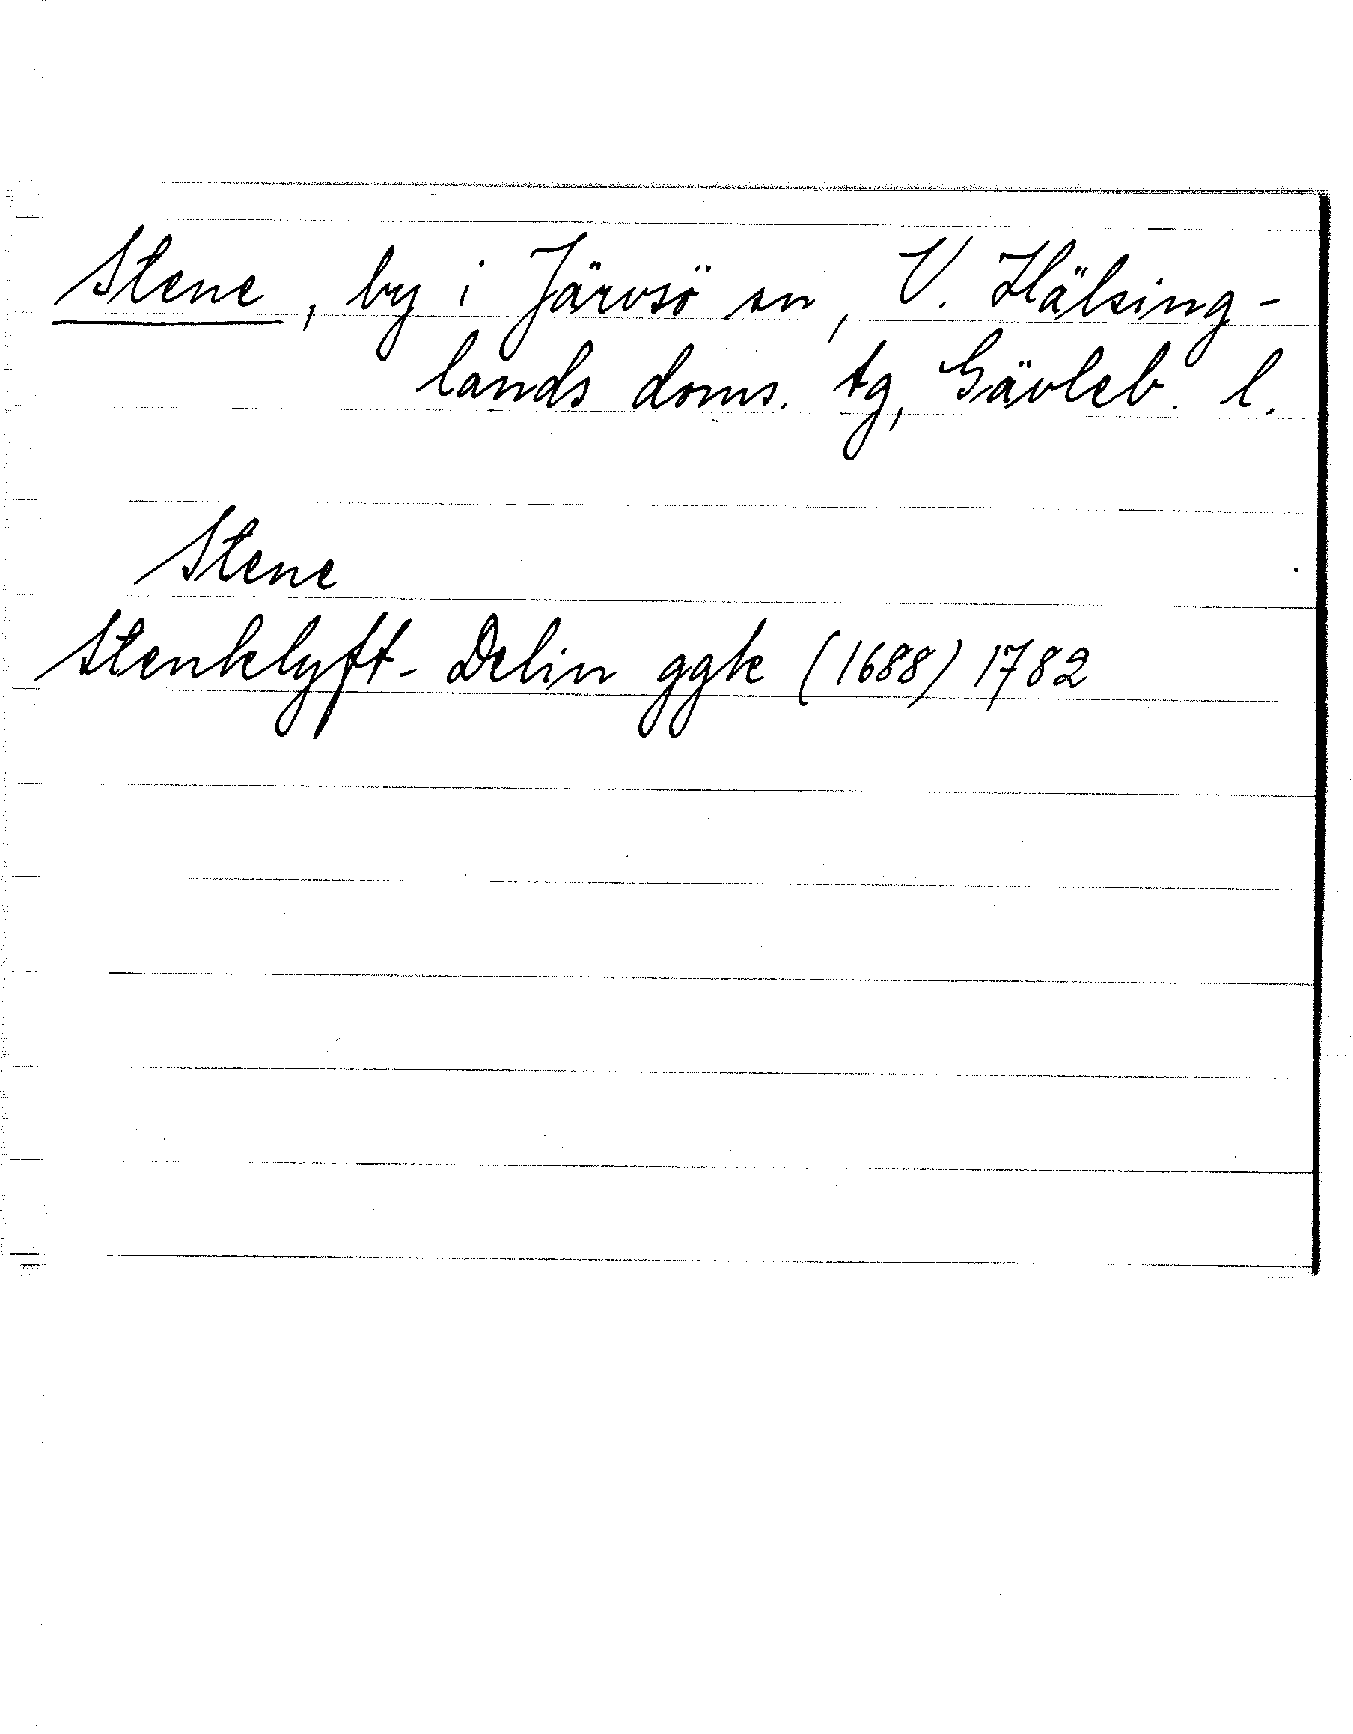 Stene, by i Järvsö sn, V. Hälsing-
lands doms. tg, Gävleb. l.
Stene
Stenklyft- Delin ggk (1688) 1782